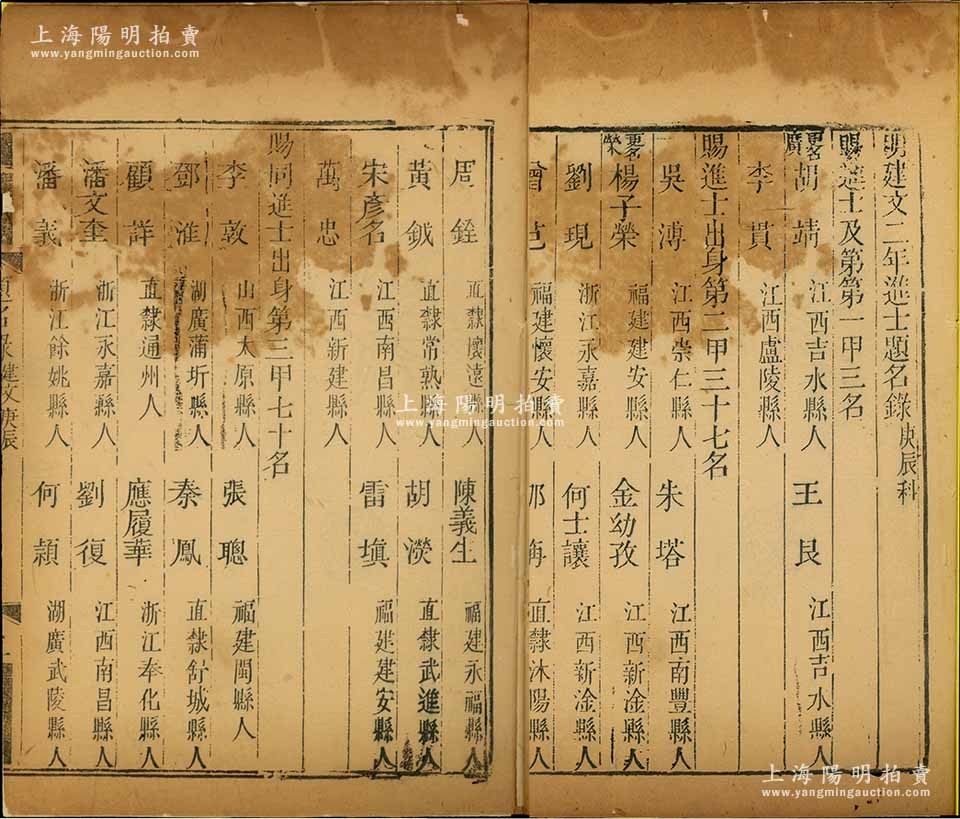 上海陽明拍賣
www.yangmingauction.com
上海陽明拍賣
www.yangmingauction.com
明建文二年進士題名錄庚辰科
賜進士及第第一甲三名
更名廣
胡靖 江西吉水縣人 王艮 江西吉水縣人
李貫 江西廬陵縣人
賜進士出身第二甲三十七名
吳溥 江西崇仁縣人 朱塔 江西南豐縣人
更名榮
楊子榮 福建建安縣人 金幼孜 江西新淦縣人
劉現 浙江永嘉縣人 何士讓 江西新淦縣人
福建懷安縣人 直隸沐陽縣人
周銓 直隸懷遠縣人 陳義生 福建永福縣人
黃鉞 直隸常熟縣人 胡濙 直隸武進縣人
宋彥名 江西南昌縣人 雷填 福建建安縣人
萬忠 江西新建縣人
賜同進士出身第三甲七十名
李敦 山西太原縣人 張聰 福建閩縣人
鄧淮 湖廣蒲圻縣人 秦鳳 直隸舒城縣人
顧詳 直隸通州人 應履華 浙江奉化縣人
潘文奎 浙江永嘉縣人 劉復 江西南昌縣人
潘義 浙江餘姚縣人 何穎 湖廣武陵縣人
題名錄 建文庚辰
上海陽明拍賣
www.yangmingauction.com
上海陽明拍賣
www.yangmingauction.com